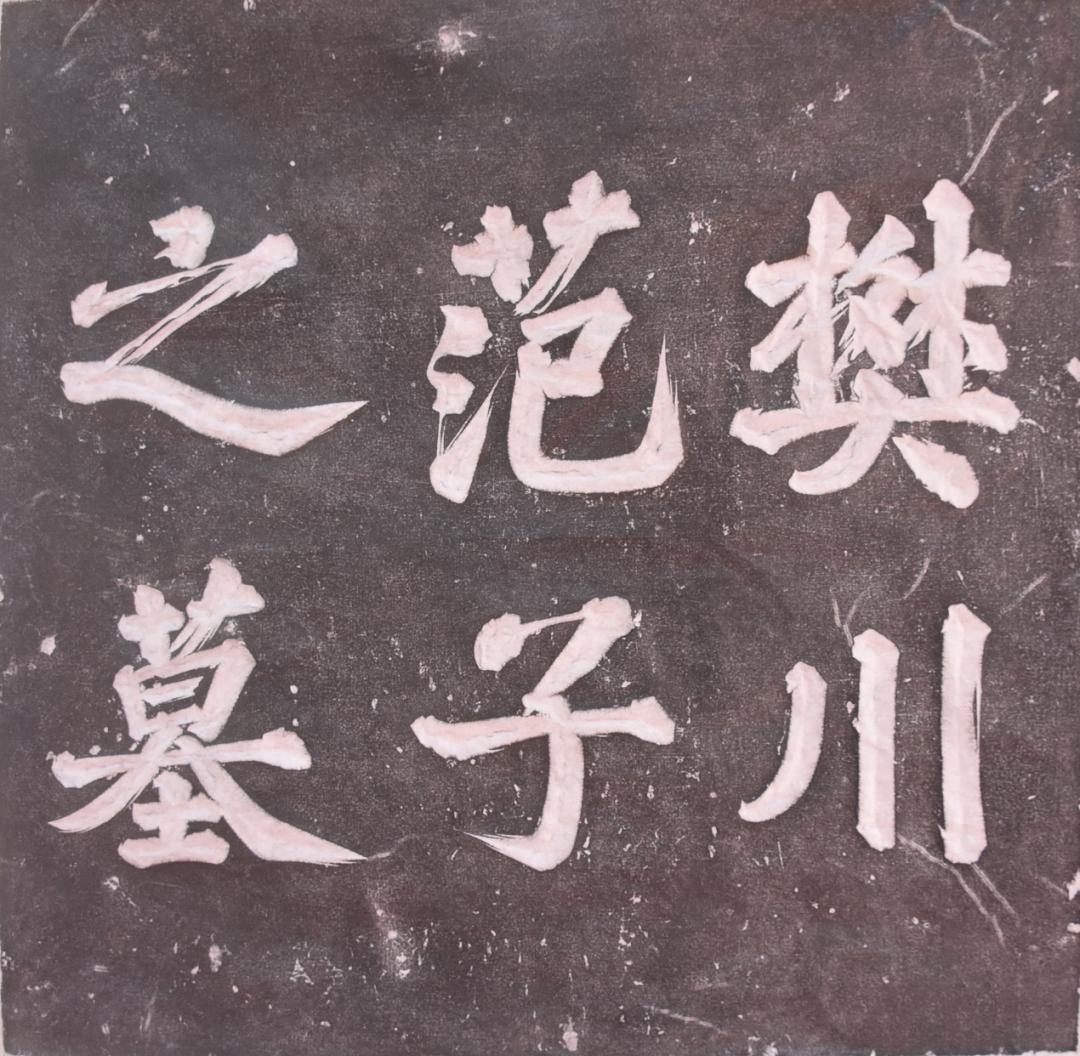 樊川
范子
之墓